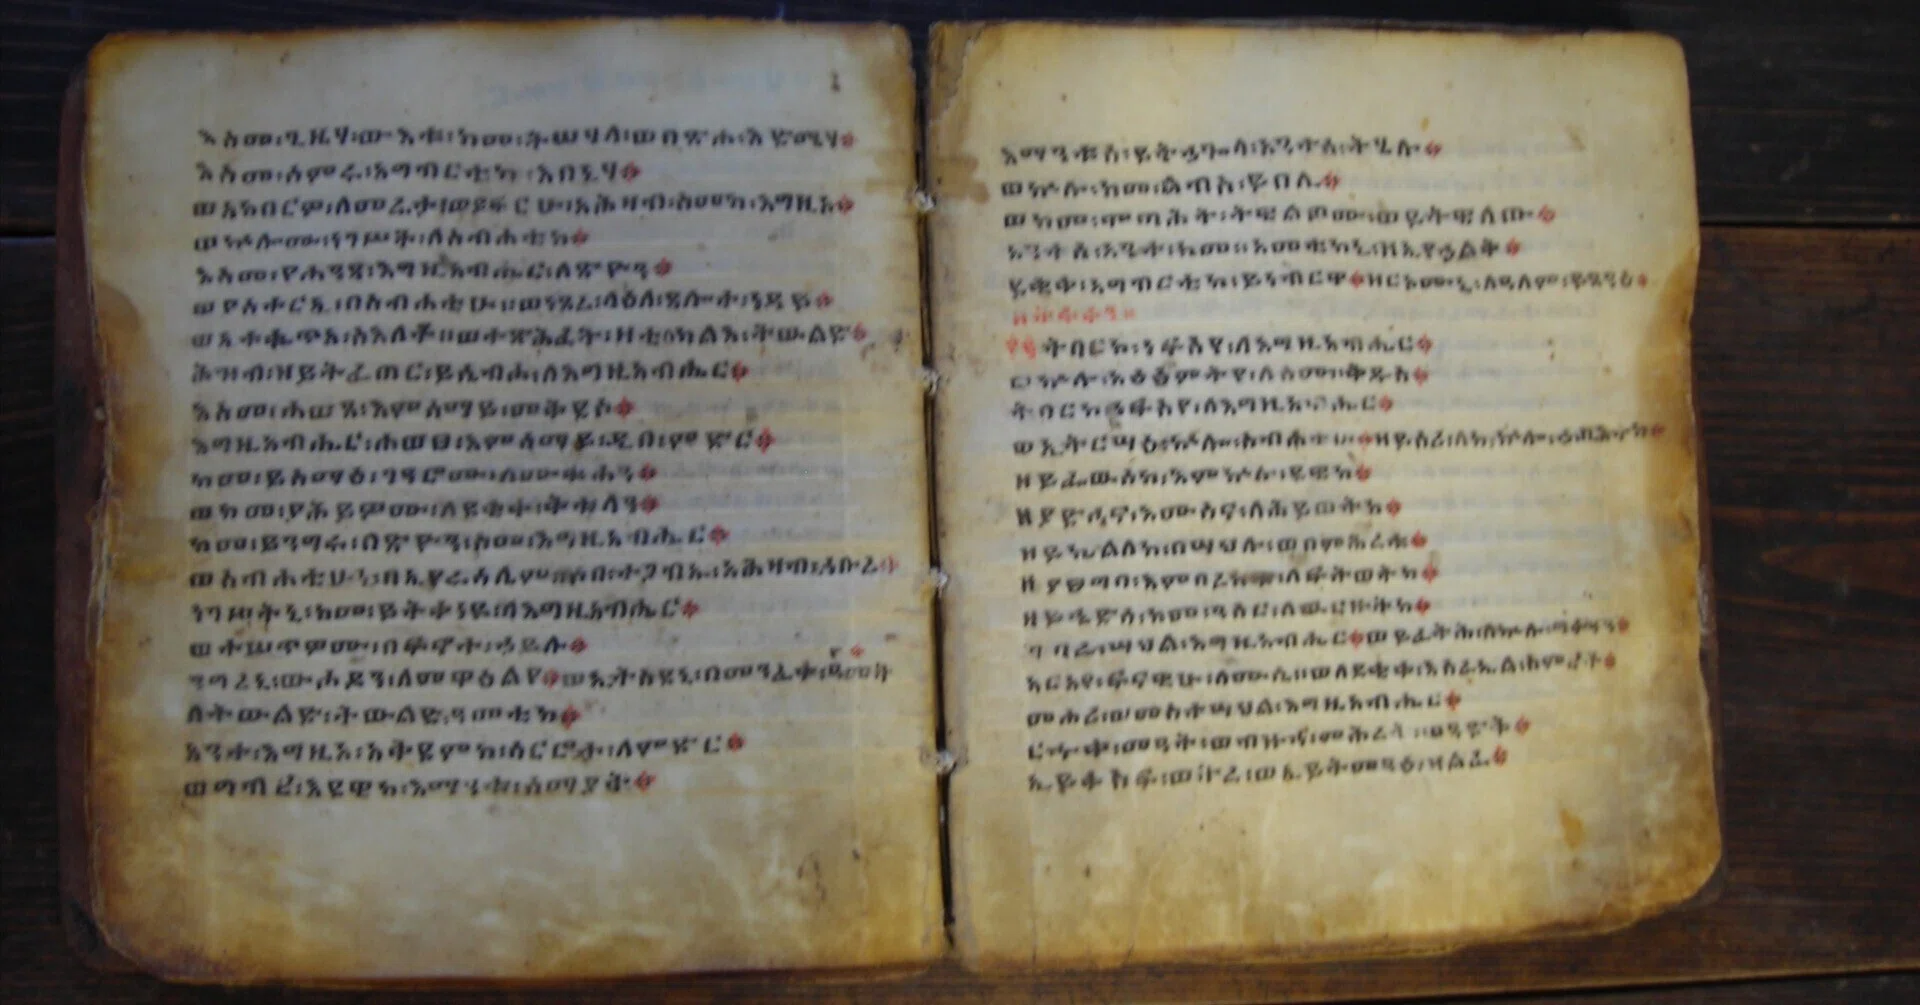 እስመ፡ጊዜሃ፡ውእቱ፡ከመ፡ትሣሃላ፡ወበጽሐ፡እድሜሃ።
እስመ፡ሠምሩ፡አግብርቲከ፡እበኒሃ።
ወአክበርዎ፡ለመሬታ፡ወይፍርሁ፡አሕዛብ፡ስመከ፡እግዚኦ።
ወኵሎሙ፡ነገሥት፡ለስብሐቲከ።
እስመ፡የሐንጻ፡እግዚአብሔር፡ለጽዮን።
ወያስተርኢ፡በስብሐቲሁ። ወነጸረ፡ላዕለ፡ጸሎተ፡ነዳይ።
ወኢተቈጥዐ፡ስእለቶ። ወተጽሕፈት፡ዛቲ፡ለካልእ፡ትውልድ።
ሕዝብ፡ዘይትፈጠር፡ይሴብሖ፡ለእግዚአብሔር።
እስመ፡ሐወጸ፡እምሰማይ፡መቅደሱ።
እግዚአብሔር፡ሐወፀ፡እምሰማይ፡ዲበ፡ምድር።
ከመ፡ይስማዕ፡ገዓሮሙ፡ለሙቁሓን።
ወከመ፡ያሕይዎሙ፡ለደቂቀ፡ቅቱላን።
ከመ፡ይንግሩ፡በጽዮን፡ስመ፡እግዚአብሔር።
ወስብሐቲሁኒ፡በኢየሩሳሌም፡ሶበ፡ተጋብኡ፡አሕዛብ፡ኅቡረ።
ነገሥትኒ፡ከመ፡ይትቀነዩ፡ለእግዚአብሔር።
ወተሠጥዎሙ፡በፍኖተ፡ኃይሉ።
ንግረኒ፡ውሕዶን፡ለመዋዕልየ። ወኢትስደኒ፡በመንፈቀ፡
ለትውልደ፡ትውልድ፡ዓመቲከ።
አንተ፡እግዚኦ፡አቅደምከ፡ሳርሮታ፡ለምድር።
ወግብረ፡እደዊከ፡እማንቱ፡ሰማያት።
እማንቱሰ፡ይትኃጐላ፡አንተሰ፡ትሄሉ።
ወኵሉ፡ከመ፡ልብስ፡ይበሊ።
ወከመ፡ሞጣሕት፡ትዌልጦሙ፡ወይትዌለጡ።
አንተሰ፡አንተ፡ከመ። ዓመቲከኒ፡ዘኢየኃልቅ።
ደቂቀ፡አግብርቲከ፡ይነብርዋ። ዘርዖሙኒ፡ለዓለም፡ይጸንዕ።
ዘዳዊት።
ትባርክ፡ነፍስየ፡ለእግዚአብሔር።
ወኵሉ፡አዕፅምትየ፡ለስሙ፡ቅዱስ።
ትባርክ፡ነፍስየ፡ለእግዚአብሔር።
ወኢትርሣዕ፡ኵሎ፡ስብሐቲሁ። ዘይሰሪ፡ለከ፡ኵሎ፡ኃጢአተከ።
ዘይፌውሰከ፡እምኵሉ፡ደዌከ።
ዘያድኅና፡እሙስና፡ለሕይወትከ።
ዘይኬልለከ፡በሣህሉ፡ወበምሕረቱ።
ዘያፀግባ፡እምበረከቱ፡ለፍትወትከ።
ዘይሔድሳ፡ከመ፡ንስር፡ለውርዙትከ።
ገባሬ፡ሣህል፡እግዚአብሔር። ወይፈትሕ፡ለኵሉ፡ግፉዓን።
አርአየ፡ፍናዊሁ፡ለሙሴ። ወለደቂቀ፡እስራኤል፡ሥምረቶ።
መሐሪ፡ወመስተሣህል፡እግዚአብሔር።
ርሑቀ፡መዓት፡ወብዙኃ፡ምሕረት፡ወጻድቅ።
ኢይቀሥፍ፡ወትረ፡ወኢይትመዓዕ፡ዘልፈ።